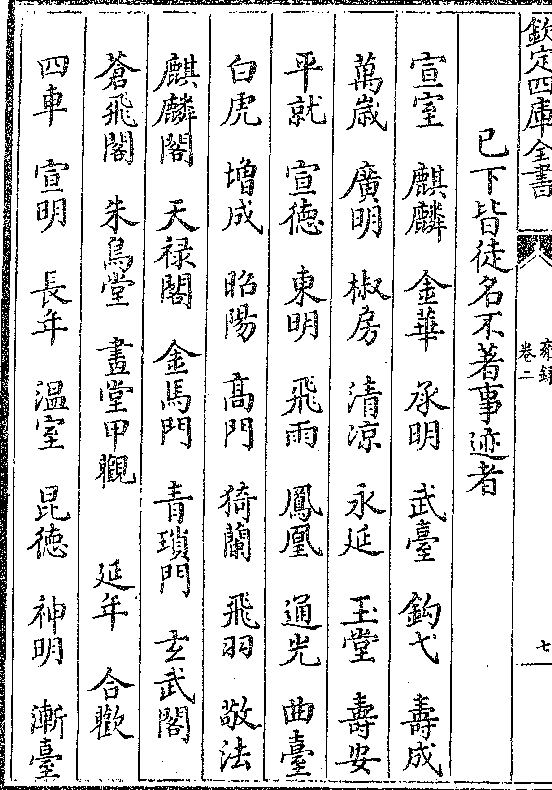 欽定四庫全書
雍録
卷二
七
已下皆徒名不著事迹者
宣室 麒麟 金華 承明 武臺 鈎弋 壽成
萬嵗 廣明 椒房 清凉 永延 玉堂 壽安
平就 宣徳 東明 飛雨 鳳凰 通光 曲臺
白虎 増成 昭陽 髙門 猗蘭 飛羽 敬法
麒麟閣 天禄閣 金馬門 青瑣門 玄武閣
蒼飛閣 朱鳥堂 畫堂甲觀 延年 合歡
四車 宣明 長年 温室 昆徳 神明 漸臺